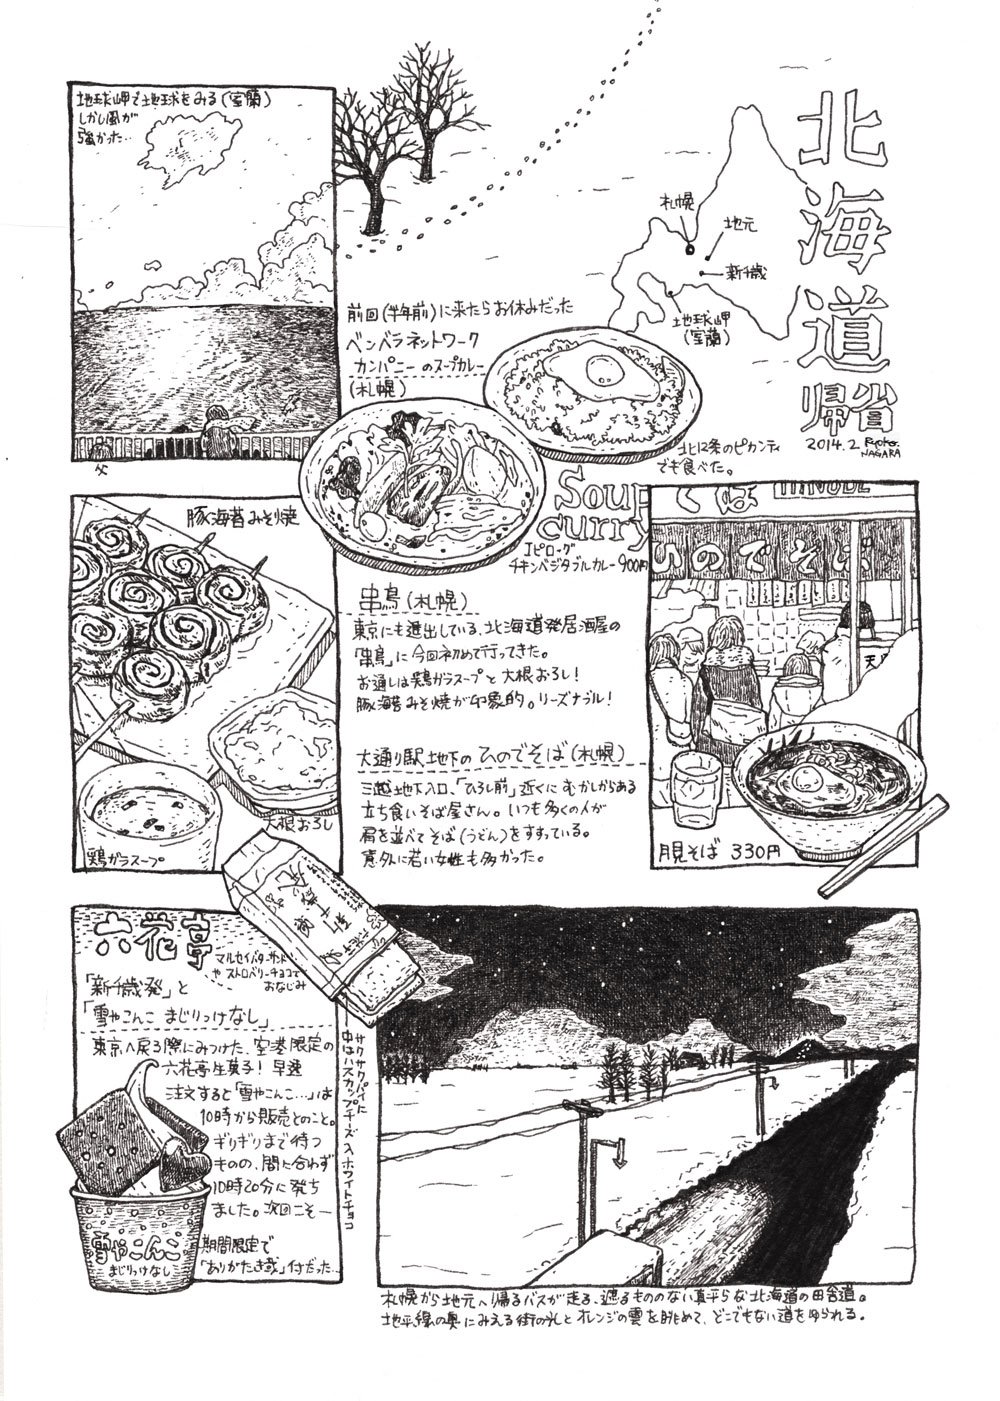 北海道
帰省
2014.2 Ryoko.
NAGARA
札幌
地元
新千歳
地球岬
(室蘭)
地球岬で地球をみる(室蘭)
しかし風が
強かった…
父
前回(半年前)に来たらお休みだった
ベンベラネットワーク
カンパニーのスープカレー
(札幌)
北12条のピカンティ
でも食べた。
Soup
curry
エピローグ
チキンベジタブルカレー900円
豚海苔みそ焼
大根おろし
鶏ガラスープ
串鳥(札幌)
東京にも進出している、北海道発居酒屋の
「串鳥」に今回初めて行ってきた。
お通しは鶏ガラスープと大根おろし!
豚海苔みそ焼が印象的。リーズナブル!
大通り駅地下のひのでそば(札幌)
三越地下入口、「ひろし前」近くにむかしからある
立ち食いそば屋さん。いつも多くの人が
肩を並べてそば(うどん)をすすっている。
意外に若い女性も多かった。
そば HINODE
ひのでそば
天
月見そば 330円
六花亭
マルセイバターサンド
やストロベリーチョコで
おなじみ
「新千歳発」と
「雪やこんこ まじりっけなし」
東京へ戻る際にみつけた、空港限定の
六花亭生菓子!早速
注文すると「雪やこんこ…」は
10時から販売とのこと。
ギリギリまで待つ
ものの、間に合わず
10時20分に発ち
ました。次回こそ―
期間限定で
「ありがたき哉」付だった…
雪やこんこ
まじりっけなし
サクサクパイに
中はハスカップチーズ入ホワイトチョコ
札幌から地元へ帰るバスが走る、遮るもののない真平らな北海道の田舎道。
地平線の奥にみえる街の光とオレンジの雲を眺めて、どこでもない道を帰られる。